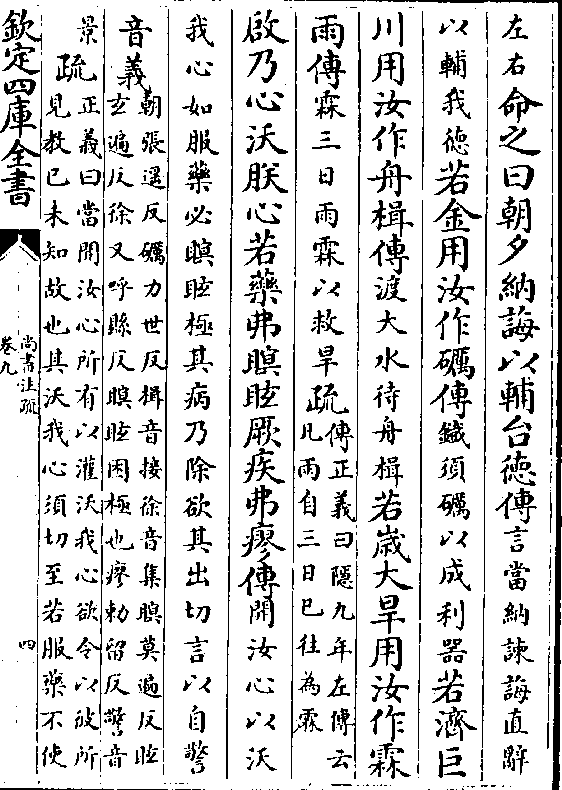 左右命之曰朝夕納誨以輔台德傳言當納諫誨直辭
以輔我德若金用汝作礪傳鐵須礪以成利器若濟巨
川用汝作舟楫傳渡大水待舟楫若歲大旱用汝作霖
雨傳霖三日雨霖以救旱疏傳正義曰隱九年左傳云
凡雨自三日已往為霖
啟乃心沃朕心若藥弗瞑眩厥疾弗瘳傳開汝心以沃
我心如服藥必瞑眩極其病乃除欲其出切言以自警
音義朝張遥反礪力世反楫音接徐音集瞑莫遍反眩
玄遍反徐又呼縣反瞑眩困極也瘳勑留反警音
景疏正義曰當開汝心所有以灌沃我心欲令以彼所
見教已未知故也其沃我心須切至若服藥不使
欽定四庫全書
尚書注疏
卷九
四